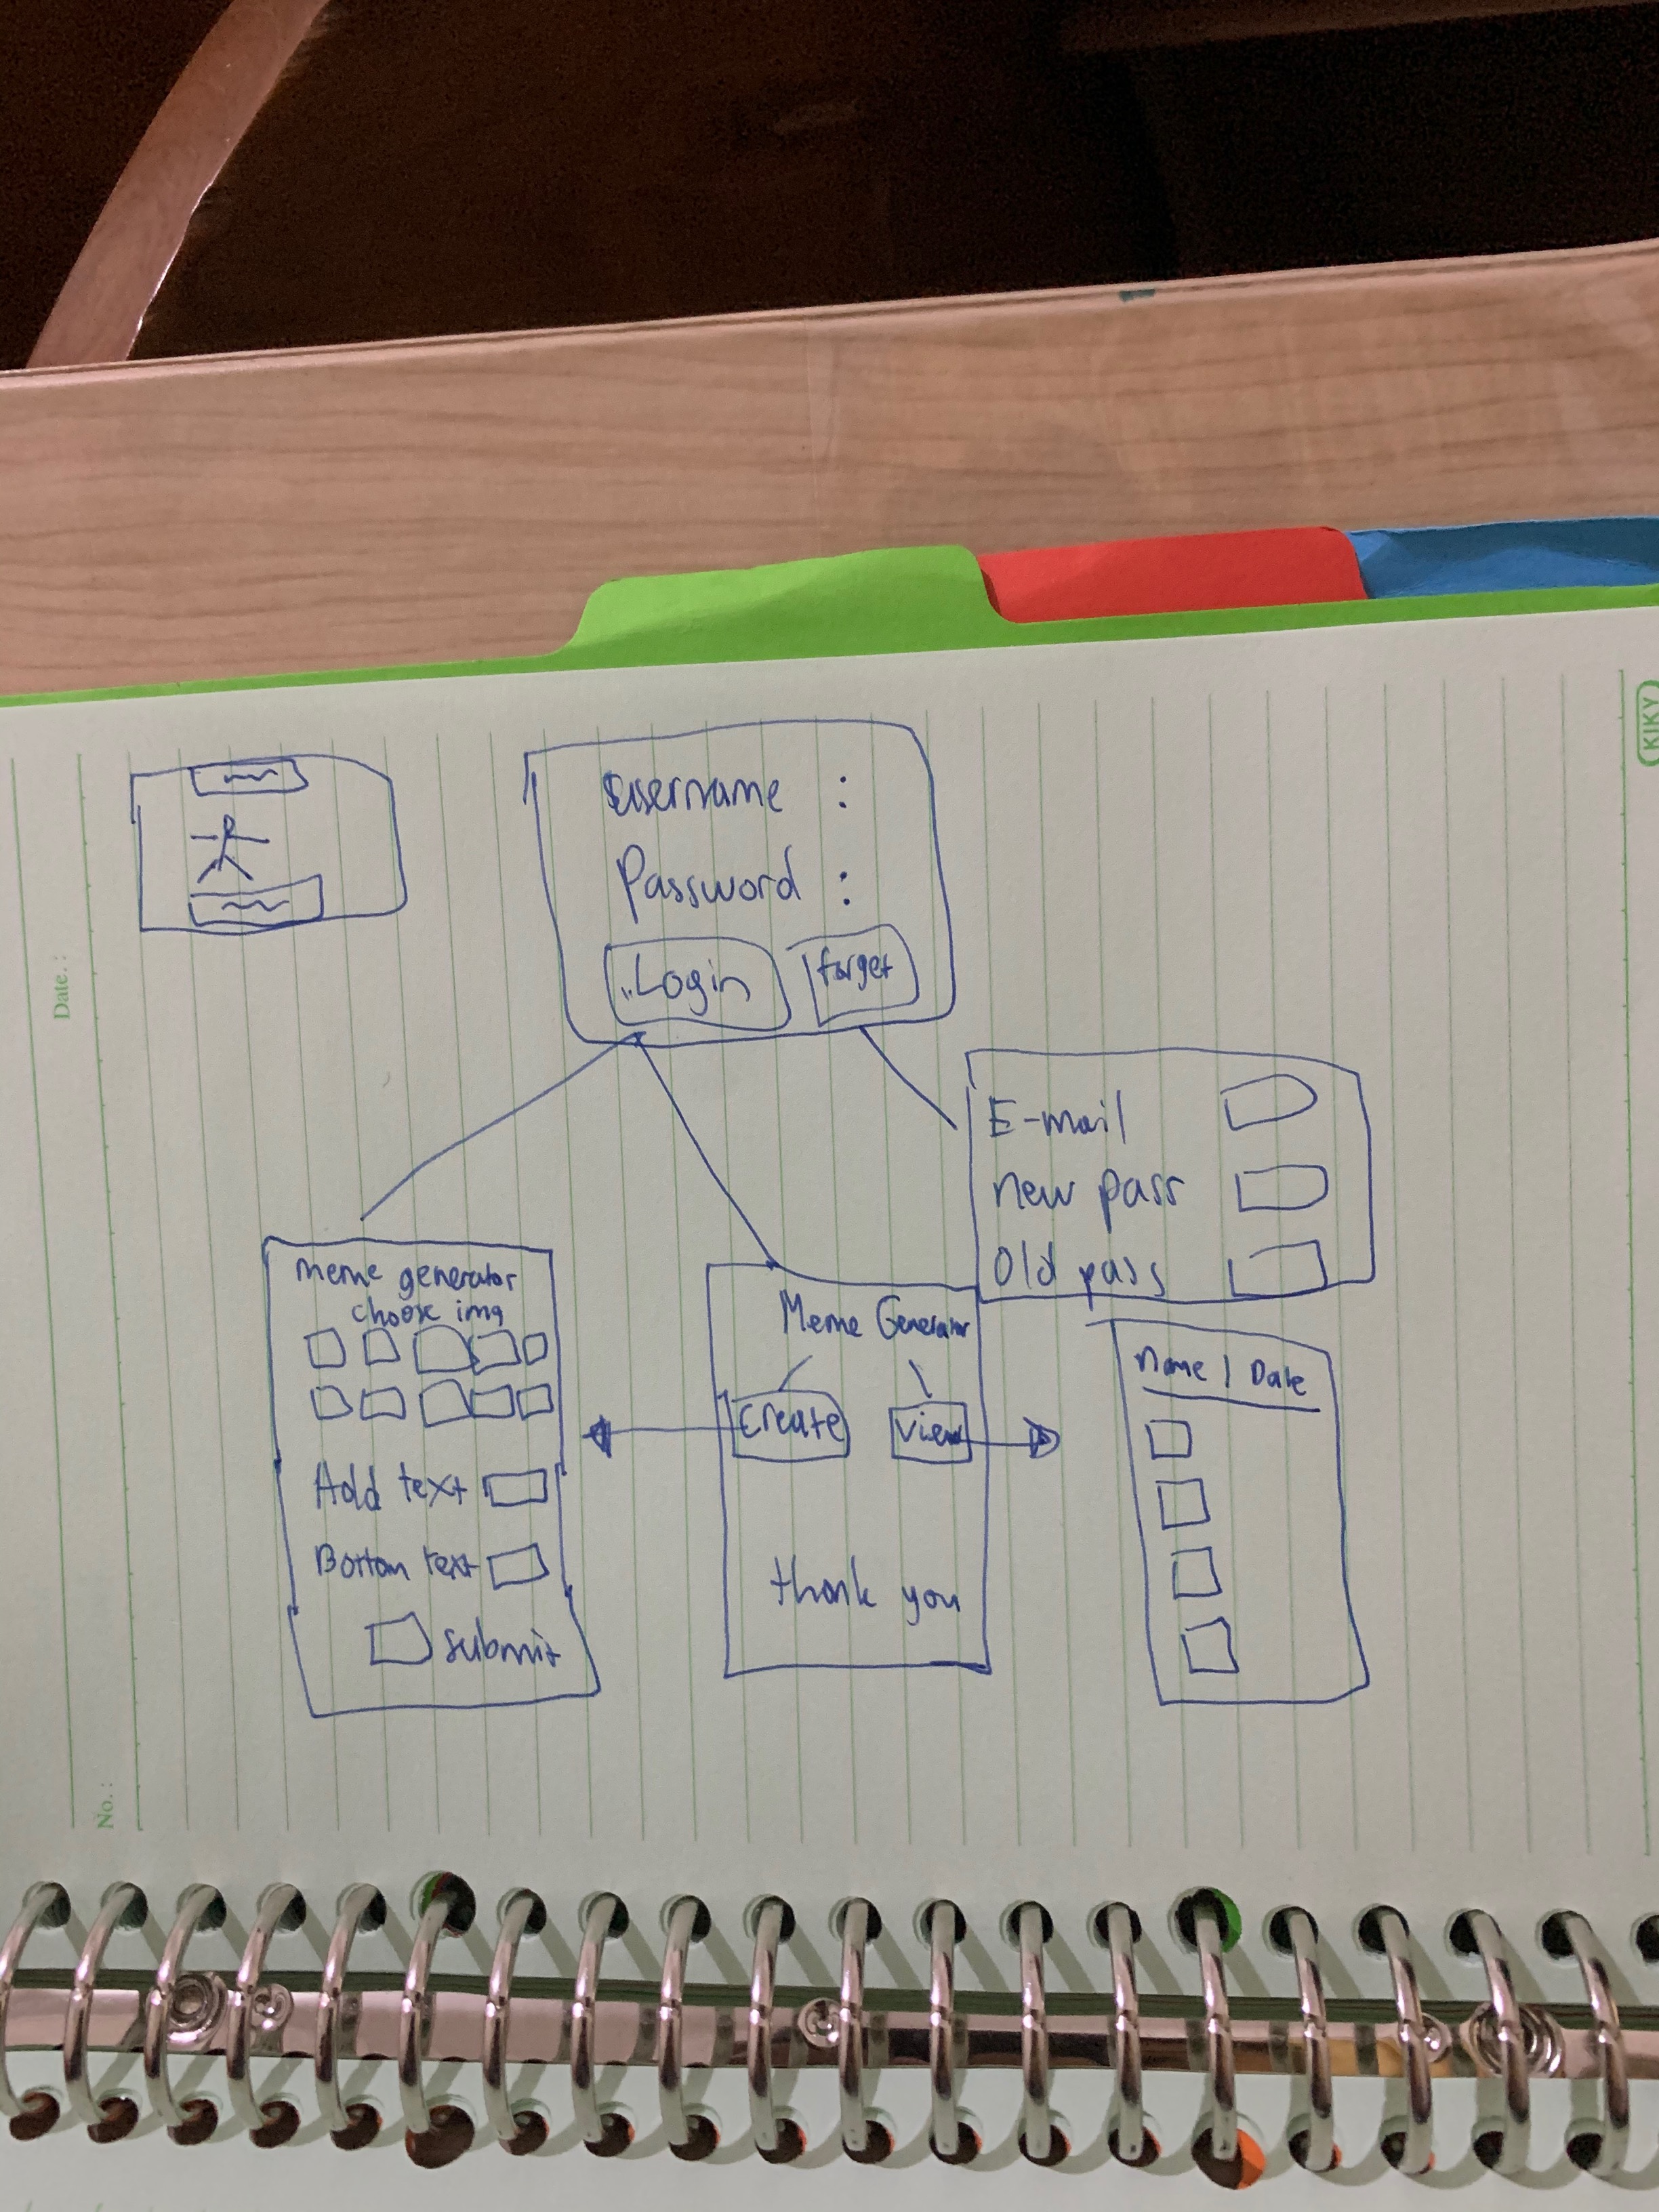 KIKY
Date. :
username :
Password :
Login
forget
E-mail
new pass
Old pass
meme generator
choose img
Add text
Bottom text
submit
Meme Generator
Create
View
thank you
Name | Date
No. :